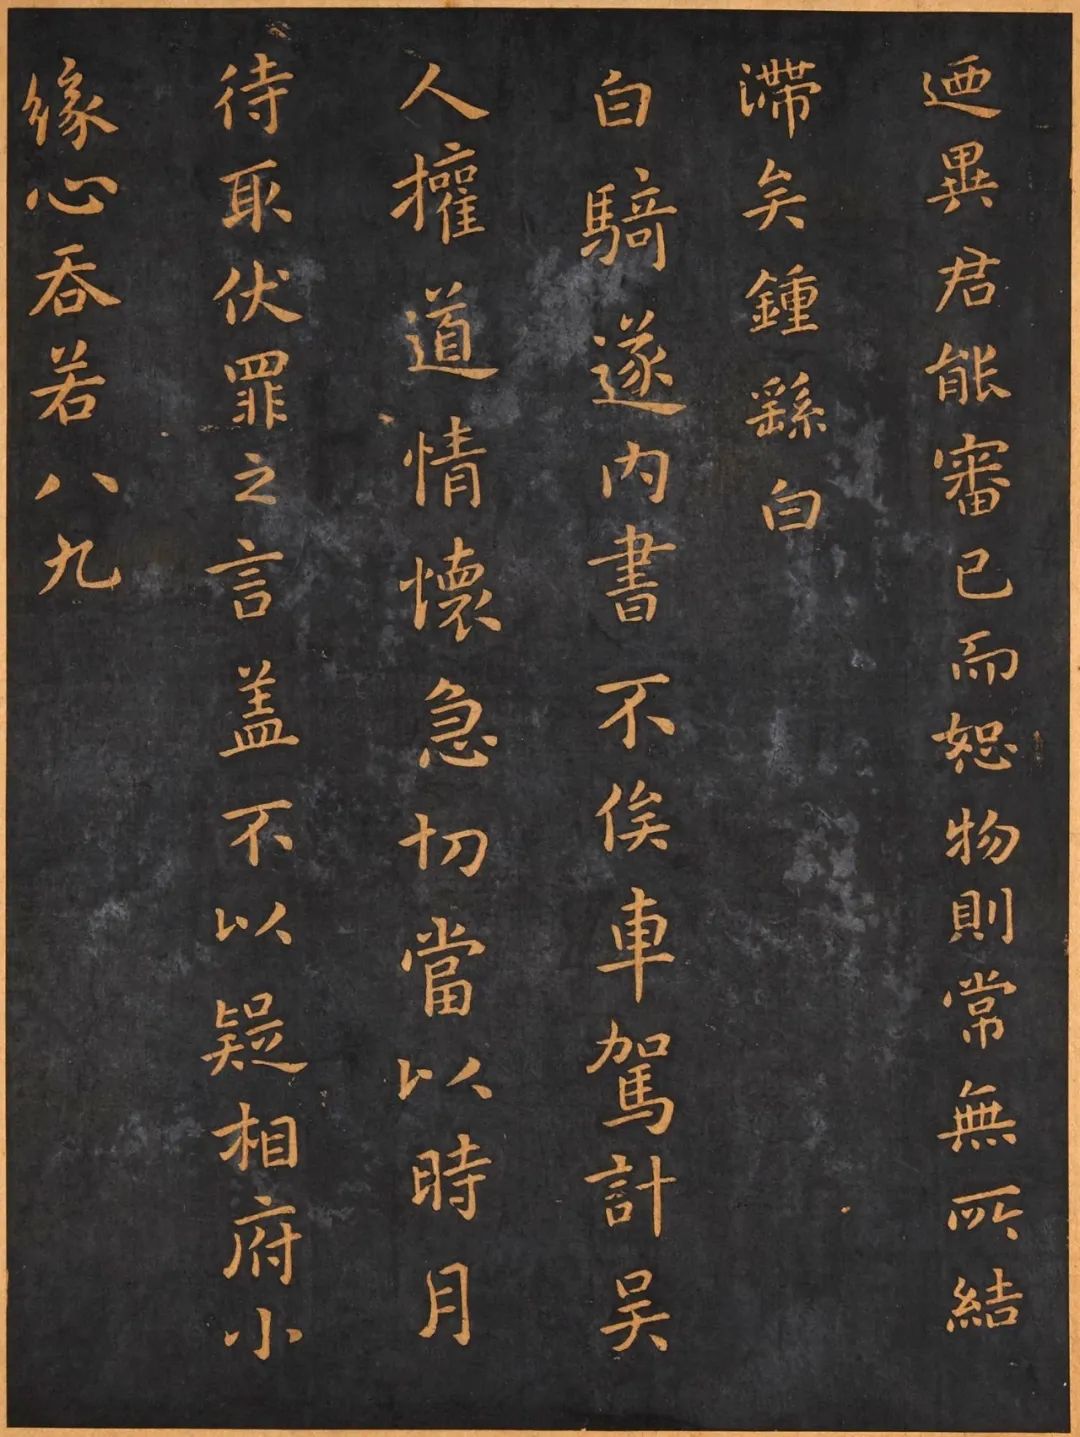 迺異君能審己而恕物則常無所結
滯矣鍾繇白
白騎遂内書不俟車駕計吴
人權道情懷急切當以時月
待取伏罪之言盖不以疑相府小
緣心吞若八九